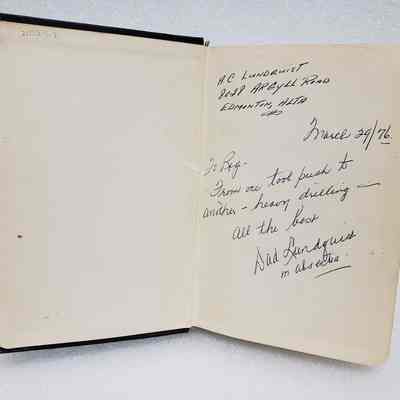 A.C. LUNDQUIST
ARGYLL ROAD
EDMONTON, ALTA
March 29/76
To Reg-
From one tool push to
another - heavy drilling -
All the best
Dad Lundquist
in absentia